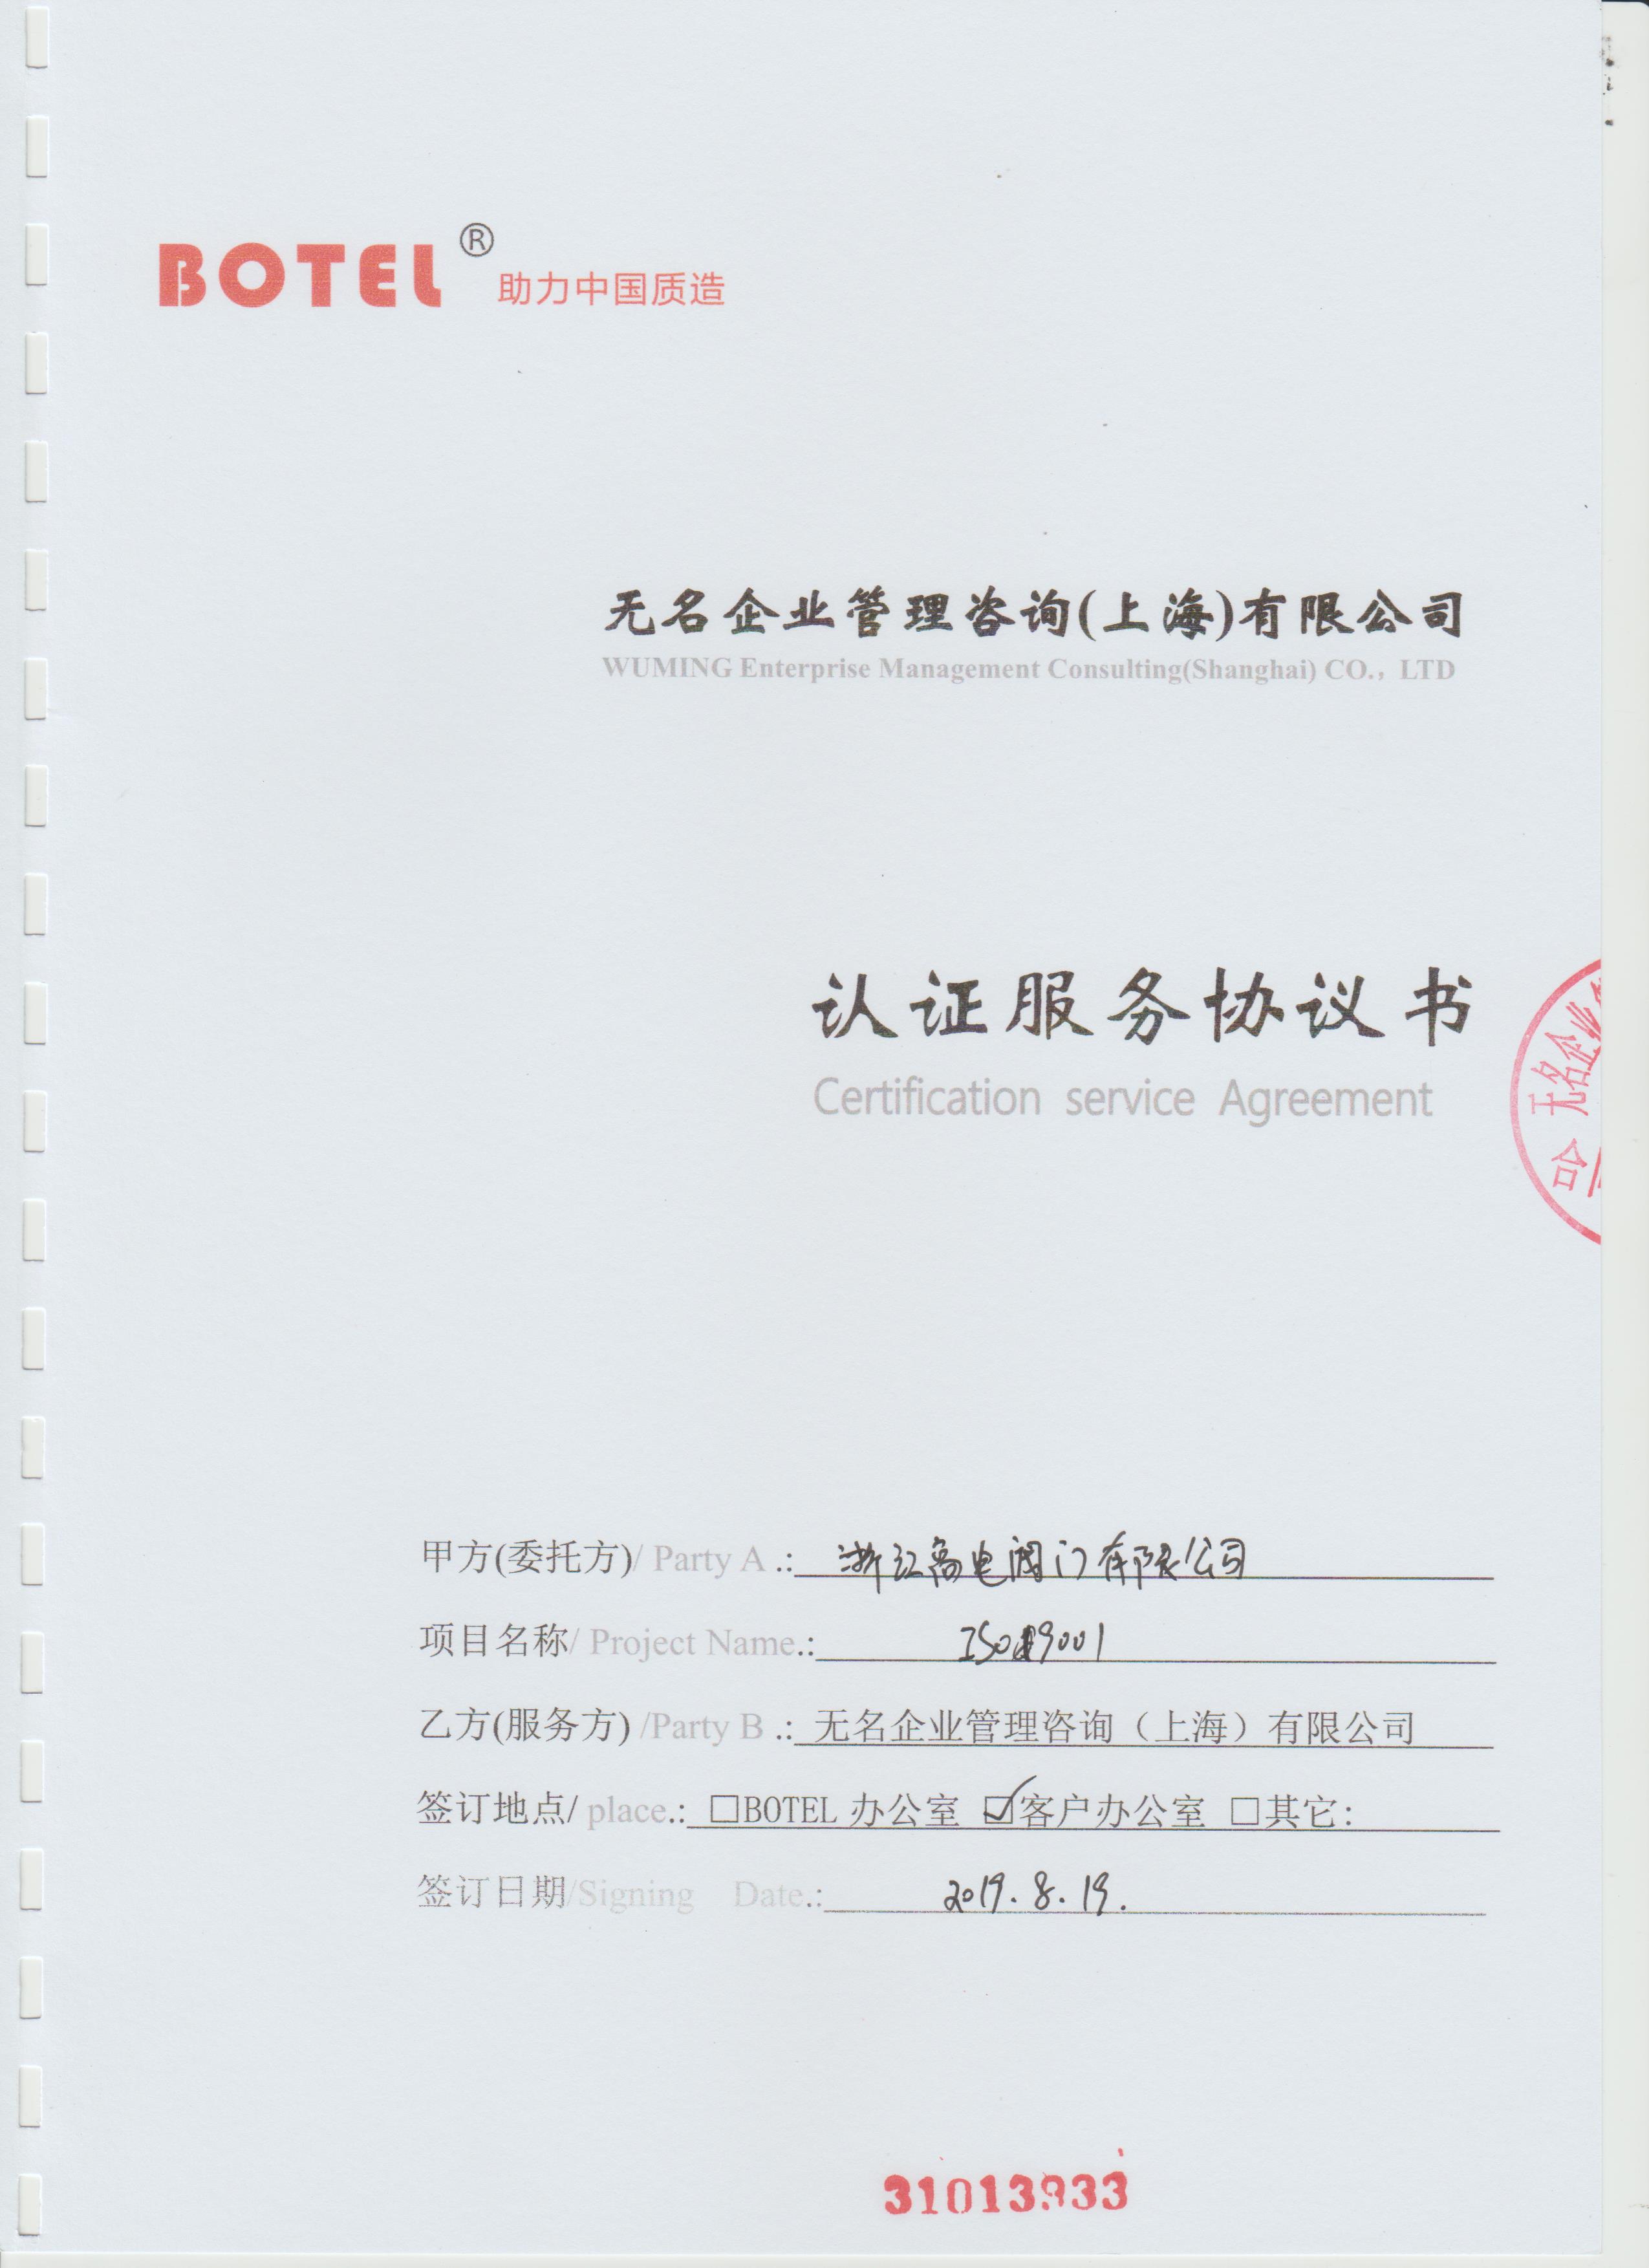 BOTEL® 助力中国质造
无名企业管理咨询(上海)有限公司
WUMING Enterprise Management Consulting(Shanghai) CO., LTD
认证服务协议书
Certification service Agreement
无名企业
合
甲方(委托方)/ Party A .: 浙江高电阀门有限公司
项目名称/ Project Name.: ISO9001
乙方(服务方) /Party B .: 无名企业管理咨询（上海）有限公司
签订地点/ place.: □BOTEL 办公室 ☑客户办公室 □其它:
签订日期/Signing Date.: 2019.8.19.
31013933